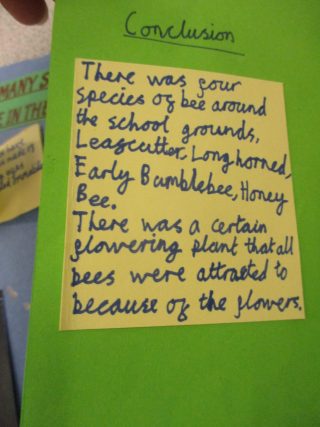 Conclusion
There was four
species of bee around
the school grounds,
Leafcutter, Long horned,
Early Bumblebee, Honey
Bee.
There was a certain
flowering plant that all
bees were attracted to
because of the flowers.
MANY S
E IN THE